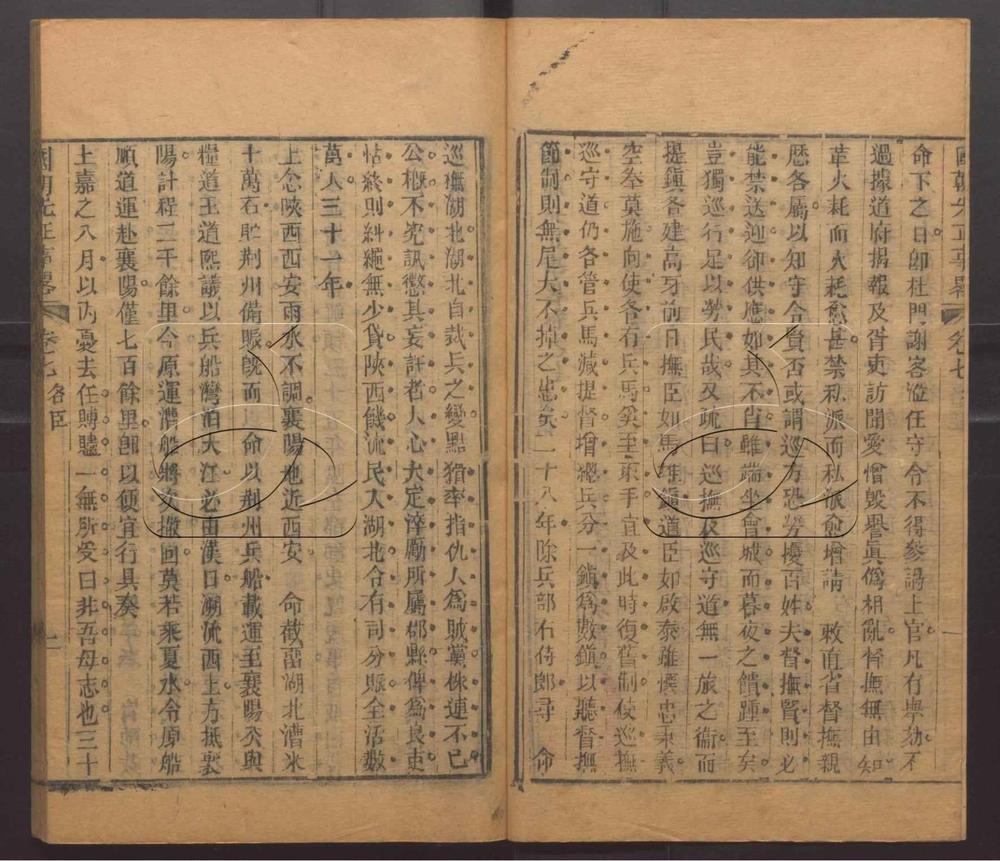 國朝先正事畧 卷七
命下之日卽杜門謝客涖任守令不得參謁上官凡有舉劾不
過據道府揭報及胥吏訪聞愛憎毀譽眞僞相亂督撫無由知
革火耗而火耗愈甚禁私派而私派愈增請 敕直省督撫親
歷各屬以知守令賢否或謂巡方恐勞擾百姓夫督撫賢則必
能禁送迎卻供應如其不肖雖端坐會城而暮夜之饋踵至矣
豈獨巡行足以勞民哉又疏曰巡撫及巡守道無一旅之衞而
提鎭各建高牙前日撫臣如馬雄鎭道臣如啟泰雖懷忠秉義
空拳莫施向使各有兵馬奚至束手宜及此時復舊制使巡撫
巡守道仍各管兵馬減提督增總兵分一鎭爲數鎭以聽督撫
節制則無尾大不掉之患矣二十八年除兵部右侍郎尋 命
巡撫湖北湖北自裁兵之變黠猾率指仇人爲賊黨株連不已
公槪不究訊懲其妄訐者人心大定淬厲所屬郡縣俾爲良吏
怙終則糾繩無少貸陝西饑流民入湖北令有司分賑全活數
萬人三十一年
上念陝西西安雨水不調襄陽地近西安 命截留湖北漕米
十萬石貯荆州備賑旣而 命以荆州兵船載運至襄陽公與
糧道王道熙議以兵船灣泊大江必由漢口溯流西上方抵襄
陽計程二千餘里今原運漕船將次撤回莫若乘夏水令原船
順道運赴襄陽僅七百餘里卽以便宜行具奏
上嘉之八月以內憂去任賻贐一無所受曰非吾母志也三十
國朝先正事畧 卷七 名臣 一